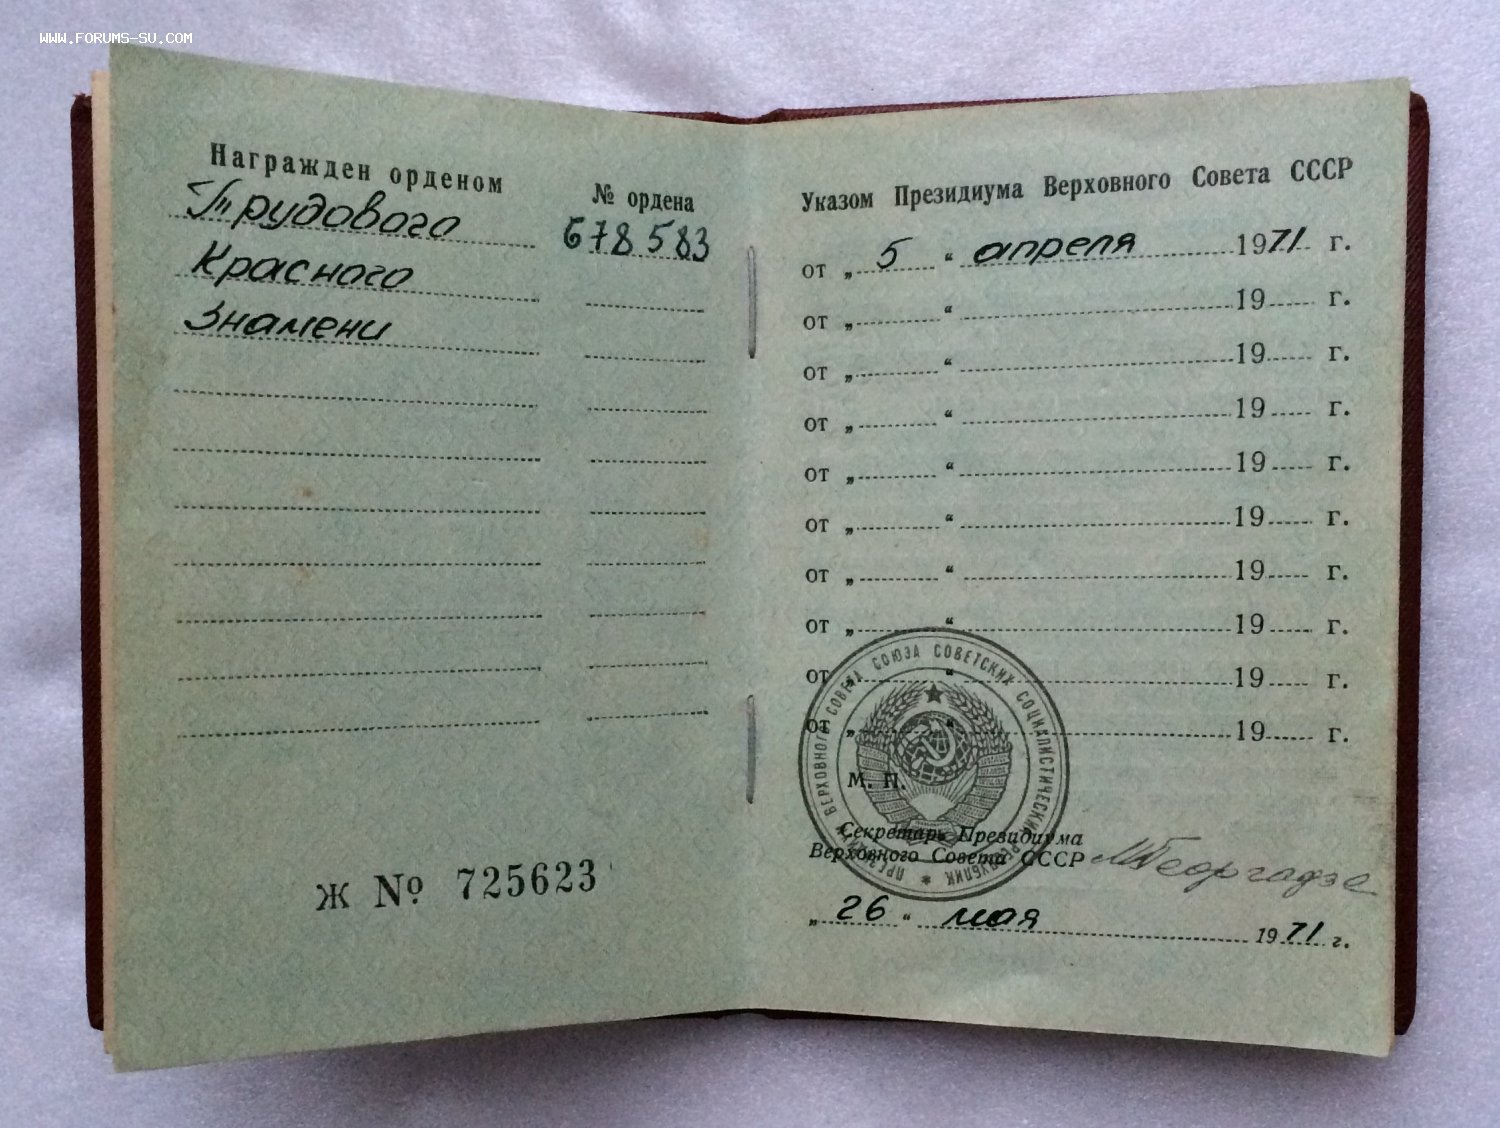 WWW.FORUMS-SU.COM
Награжден орденом
№ ордена
Трудового
678583
Красного
Знамени
Ж № 725623
Указом Президиума Верховного Совета СССР
от „ 5 “ апреля 1971 г.
от „ “ 19 г.
от „ “ 19 г.
от „ “ 19 г.
от „ “ 19 г.
от „ “ 19 г.
от „ “ 19 г.
от „ “ 19 г.
от „ “ 19 г.
от „ “ 19 г.
ПРЕЗИДИУМ ВЕРХОВНОГО СОВЕТА СОЮЗА СОВЕТСКИХ СОЦИАЛИСТИЧЕСКИХ РЕСПУБЛИК
М. П.
Секретарь Президиума
Верховного Совета СССР
МГеоргадзе
„ 26 “ мая 1971 г.